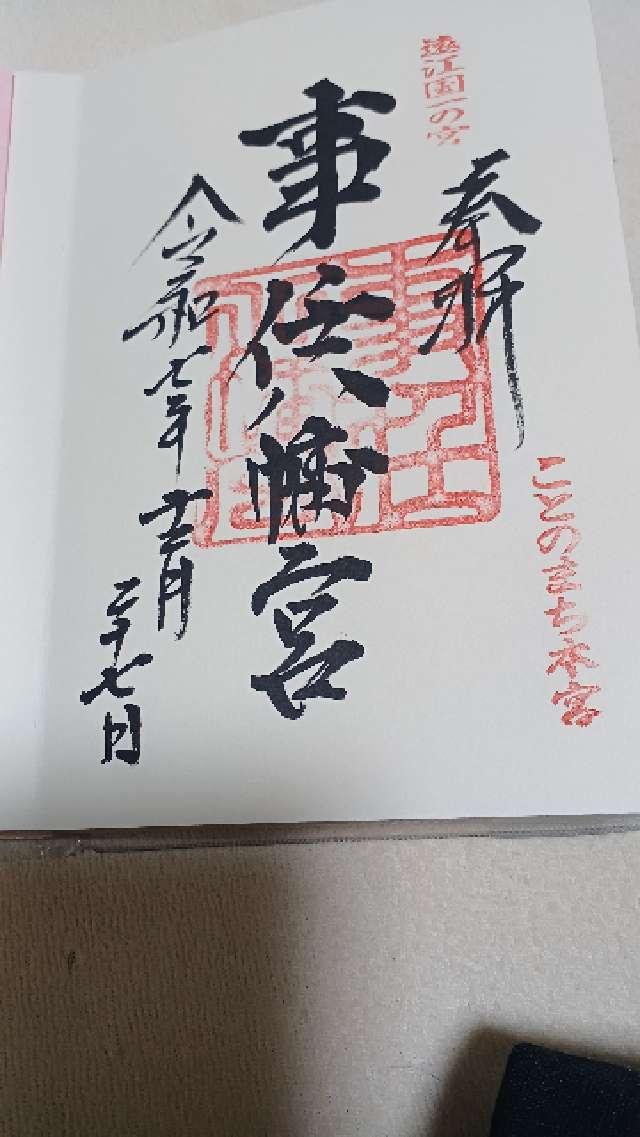 遠江国一の宮
奉拝
ことのまち本宮
事任八幡宮
令和七年十二月
二十七日